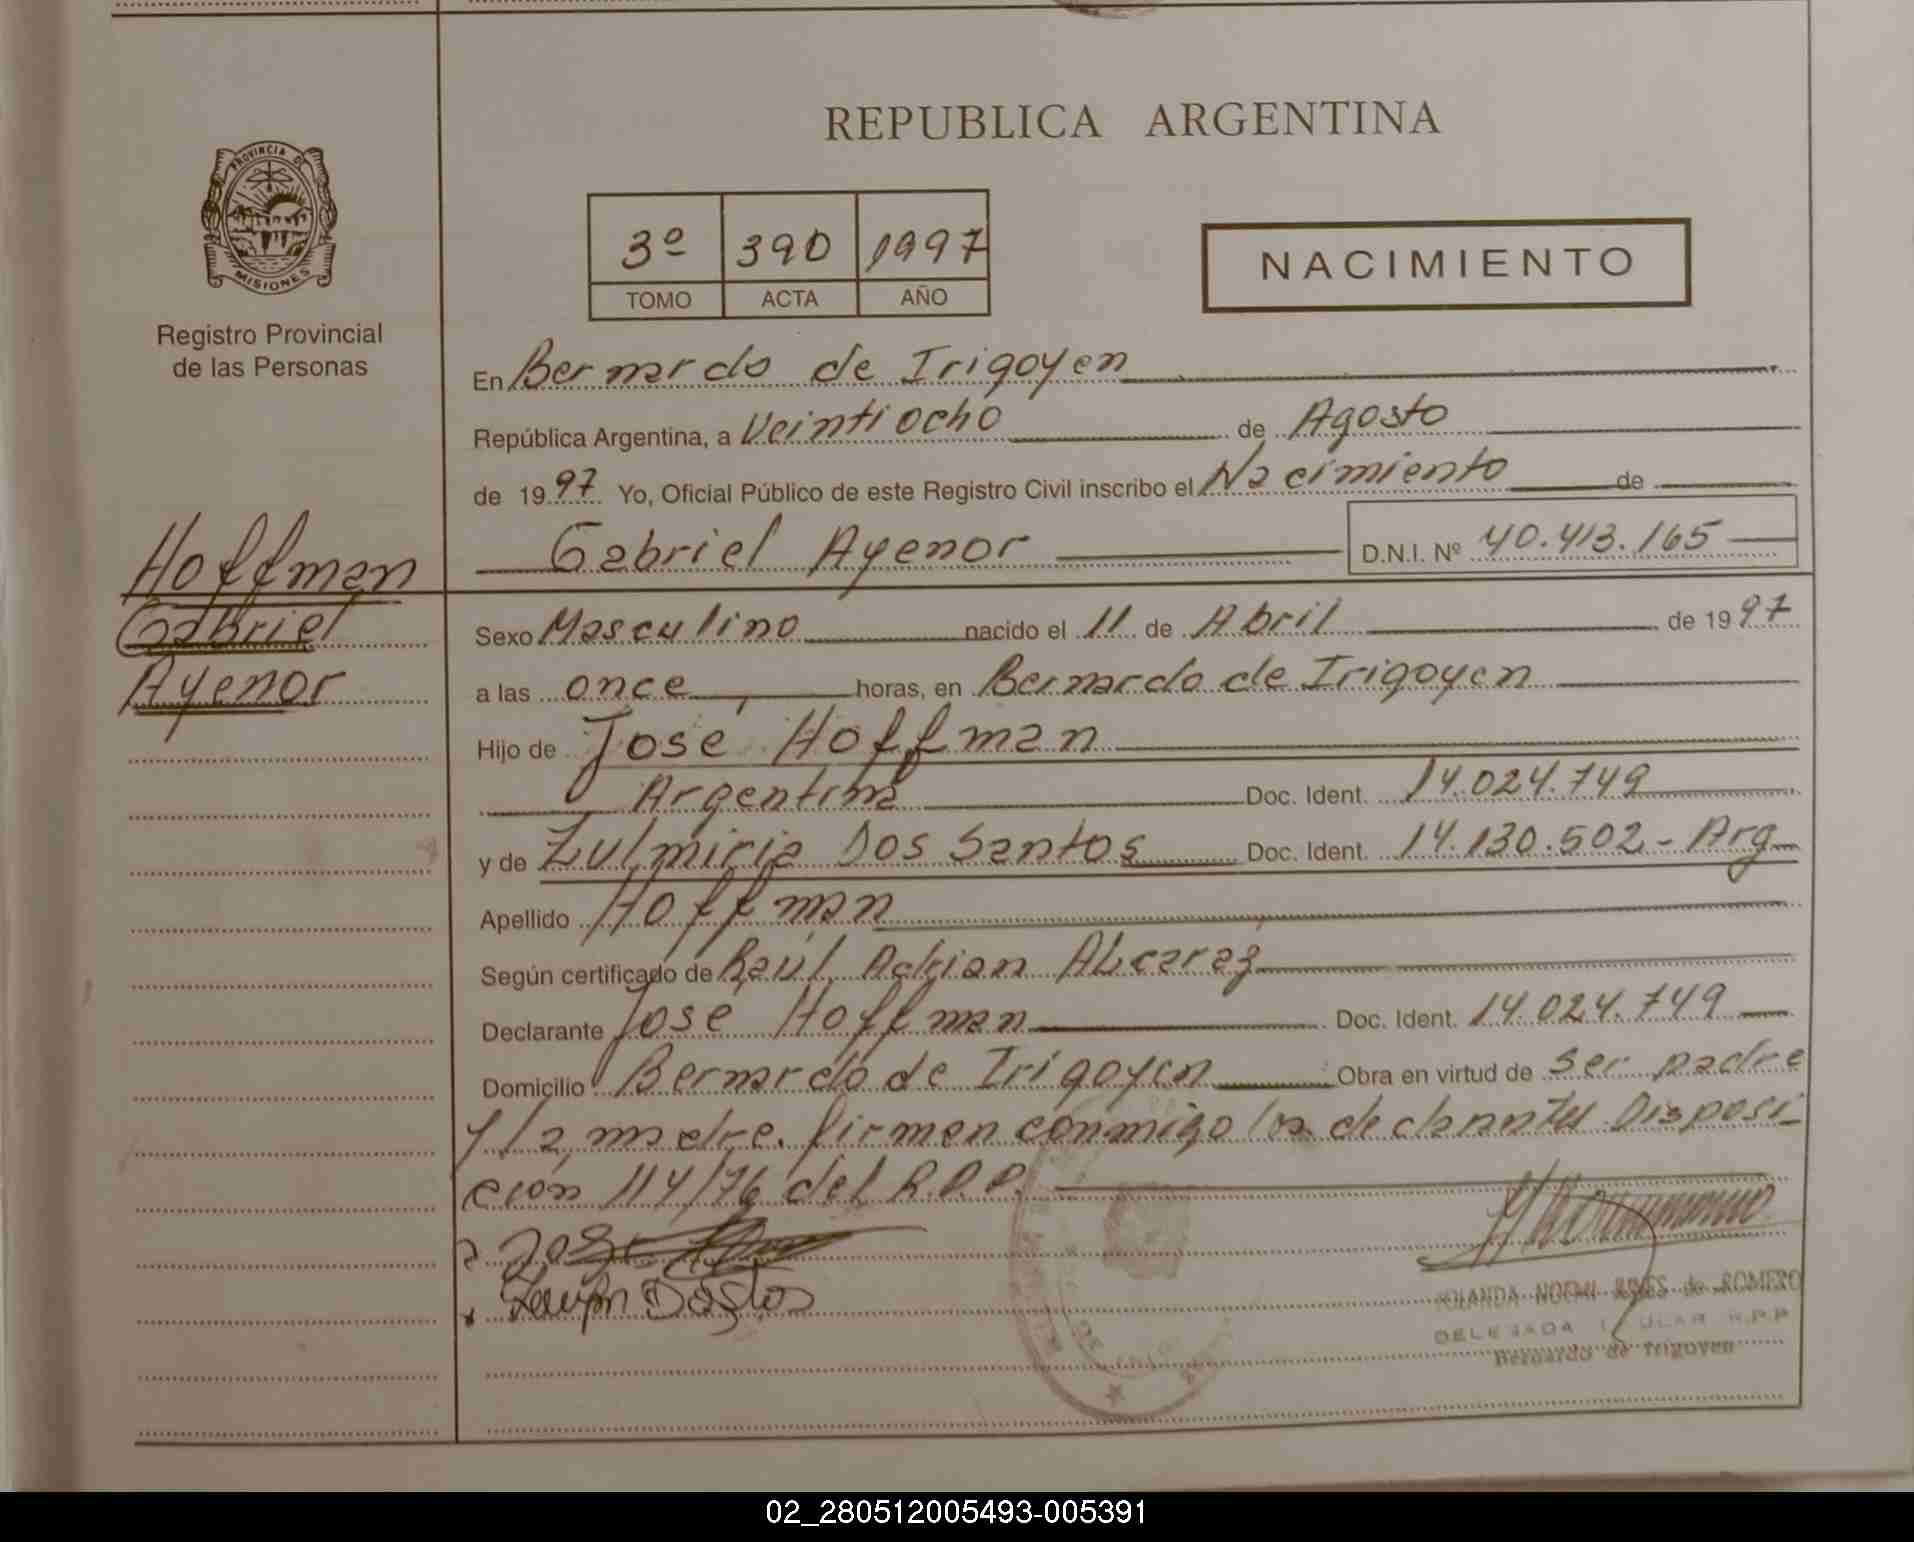 REPUBLICA ARGENTINA
PROVINCIA DE
MISIONES
Registro Provincial
de las Personas
3º 390 1997
TOMO ACTA AÑO
NACIMIENTO
En Bernardo de Irigoyen
República Argentina, a Veintiocho de Agosto
de 1997 Yo, Oficial Público de este Registro Civil inscribo el Nacimiento de
Gabriel Ayenor D.N.I. Nº 40.413.165
Hoffman
Gabriel
Ayenor
Sexo Masculino nacido el 11 de Abril de 1997
a las once horas, en Bernardo de Irigoyen
Hijo de José Hoffman
Argentina Doc. Ident. 14.024.749
y de Zulmiria Dos Santos Doc. Ident. 14.130.502 - Arg
Apellido Hoffman
Según certificado de Raúl Adrian ALcaraz
Declarante José Hoffman Doc. Ident. 14.024.749
Domicilio Bernardo de Irigoyen Obra en virtud de ser padre
y la madre. firman conmigo los Disposi-
ción 114/76 del R.P.P.
José
YOLANDA NOEMI de ROMERO
DELEGADA TITULAR R.P.P
Bernardo de Irigoyen
02_280512005493-005391